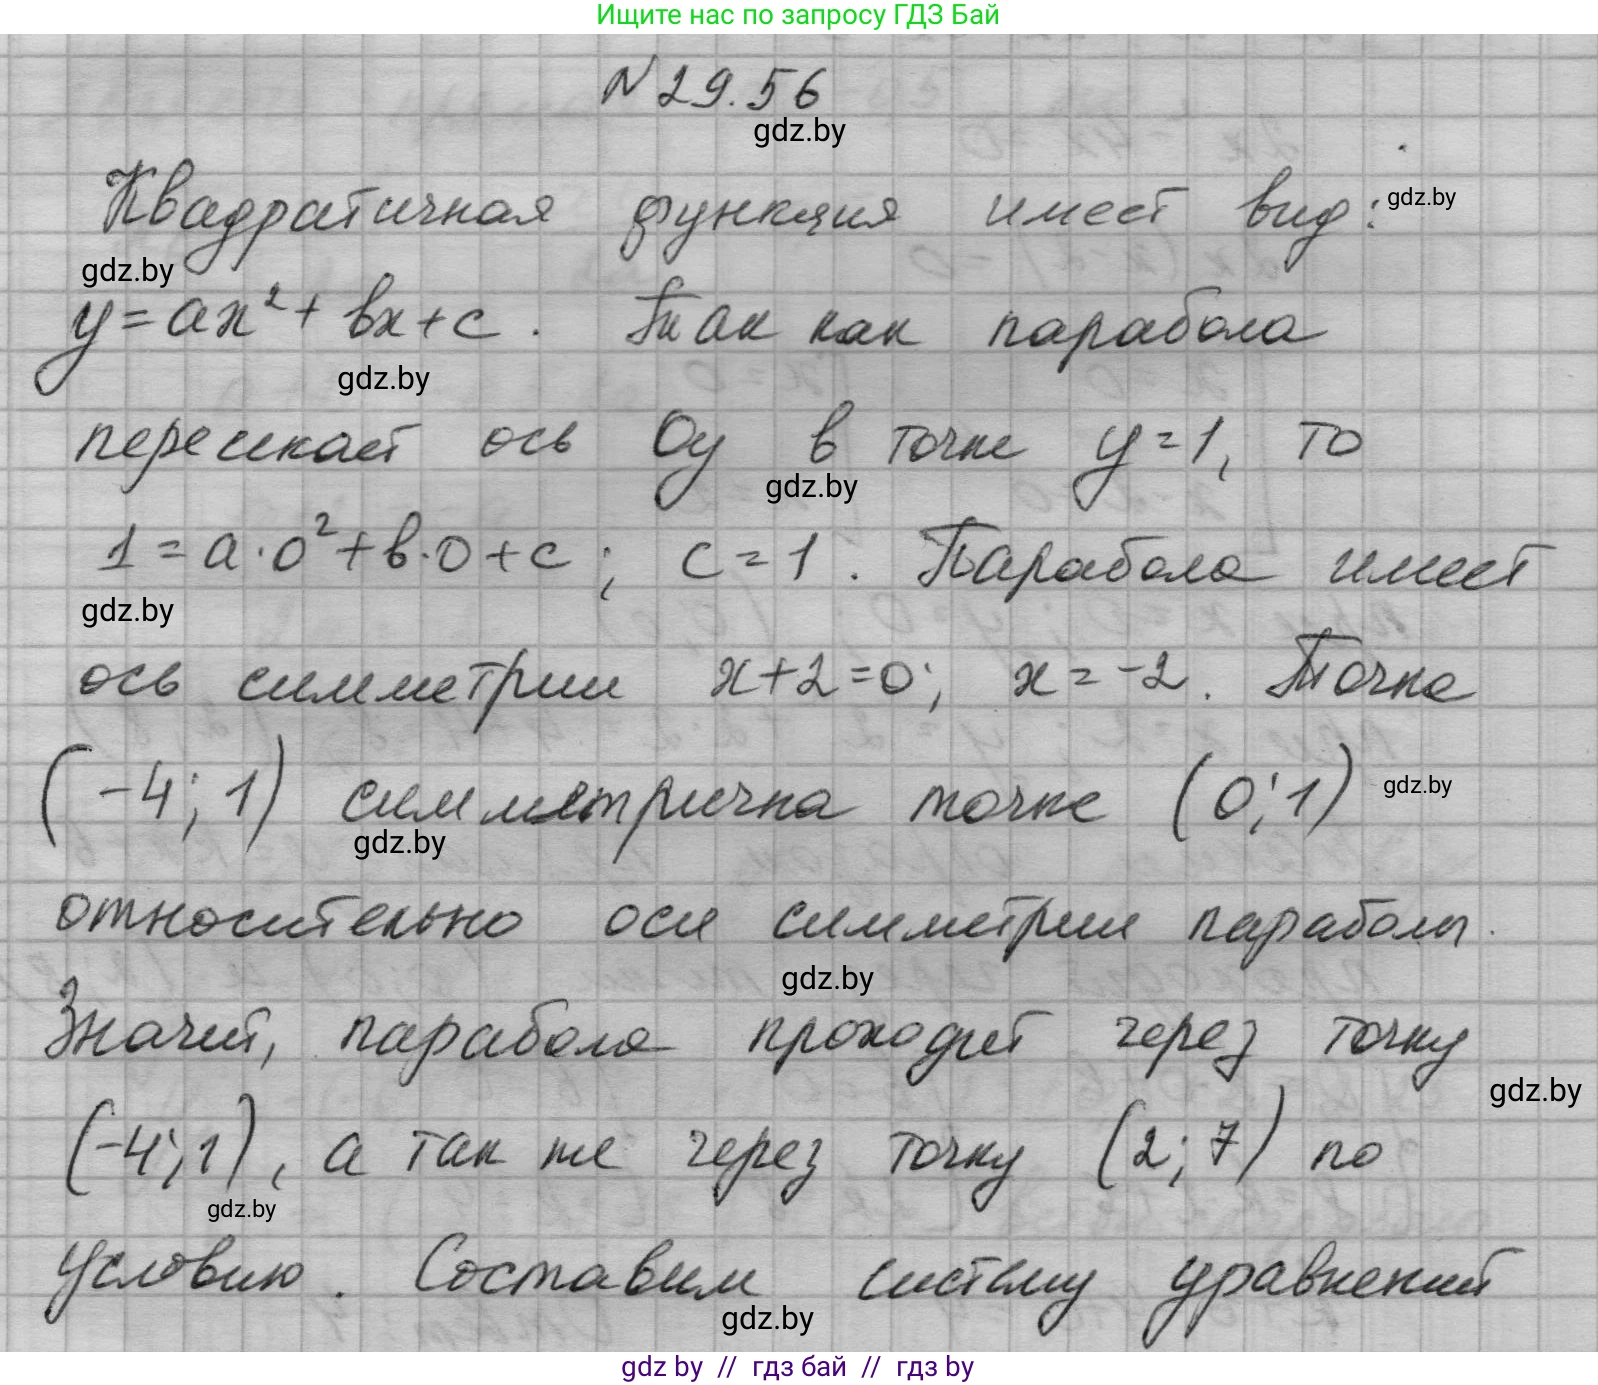 Ищите нас по запросу ГДЗ Бай
N 29.56
gdz.by
Квадратичная функция имеет вид:
gdz.by
gdz.by
y=ax²+bx+c. Так как парабола
gdz.by
пересекает ось Oy в точке y=1, то
gdz.by
1=a·0²+b·0+c; c=1. Парабола имеет
gdz.by
ось симметрии x+2=0; x=-2. Точка
(-4;1) симметрична точке (0;1)
gdz.by
gdz.by
относительно оси симметрии параболы.
gdz.by
Значит, парабола проходит через точку
gdz.by
(-4;1), а так же через точку (2;7) по
gdz.by
условию. Составим систему уравнений
gdz.by
gdz by // гдз бай // гдз by